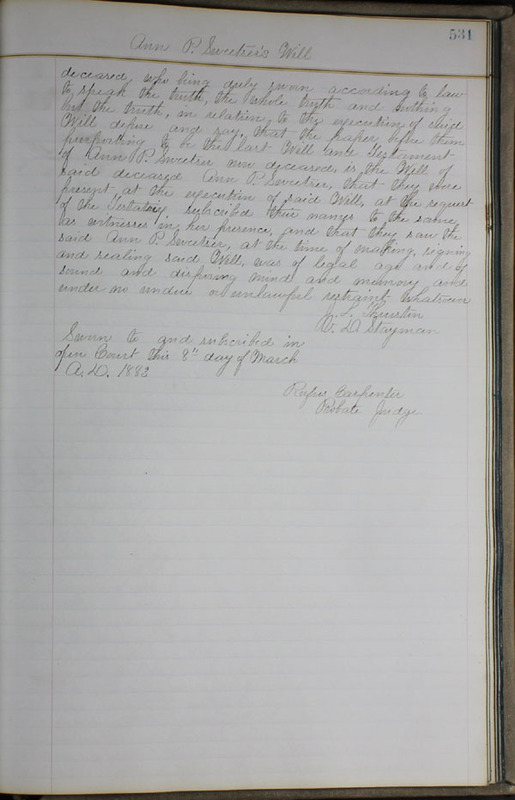 531
Ann P. Sweetser's Will
deceased, who being duly sworn according to law
to speak the truth, the whole truth and nothing
but the truth, in relation to the execution of said
Will depose and say, that the paper before them
purporting to be the last Will and Testament
of Ann P. Sweetser now deceased, is the Will of
said deceased Ann P. Sweetser, that they were
present at the execution of said Will, at the request
of the Testatrix subscribed their names to the same,
as witnesses in her presence, and that they saw the
said Ann P. Sweetser, at the time of making, signing
and sealing said Will, was of legal age and of
sound and disposing mind and memory and
under no undue or unlawful restraint whatsoever
J. L. Thurstin
W. D. Stayman
Sworn to and subscribed in
open Court this 8th day of March
A.D. 1883
Rufus Carpenter
Probate Judge